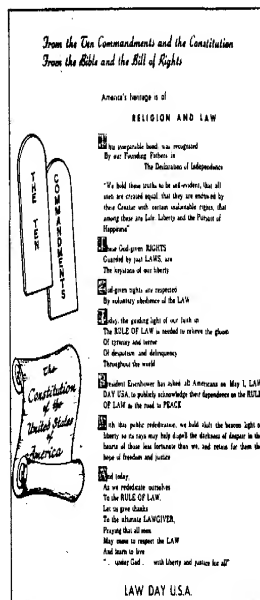 From the Ten Commandments and the Constitution
From the Bible and the Bill of Rights
America's heritage is of
RELIGION AND LAW
This inseparable bond, was recognized
By our Founding Fathers in
The Declaration of Independence
"We hold these truths to be self-evident, that all
men are created equal, that they are endowed by
their Creator with certain unalienable rights, that
among these are Life, Liberty and the Pursuit of
Happiness"
These God-given RIGHTS
Guarded by just LAWS, are
The keystone of our liberty
God-given rights are respected
By voluntary obedience of the LAW
Today, the guiding light of our faith in
The RULE OF LAW is needed to relieve the gloom
Of tyranny and terror
Of despotism and delinquency
Throughout the world
President Eisenhower has asked all Americans on May 1, LAW
DAY USA, to publicly acknowledge their dependence on the RULE
OF LAW as the road to PEACE
With this public rededication, we hold aloft the beacon light of
liberty so its rays may help dispell the darkness of despair in the
hearts of those less fortunate than we, and retain for them the
hope of freedom and justice
And today,
As we rededicate ourselves
To the RULE OF LAW,
Let us give thanks
To the ultimate LAWGIVER,
Praying that all men
May come to respect the LAW
And learn to live
". . under God . . with Liberty and justice for all"
LAW DAY U.S.A.
THE TEN
COMMANDMENTS
The
Constitution
of the
United States
of
America